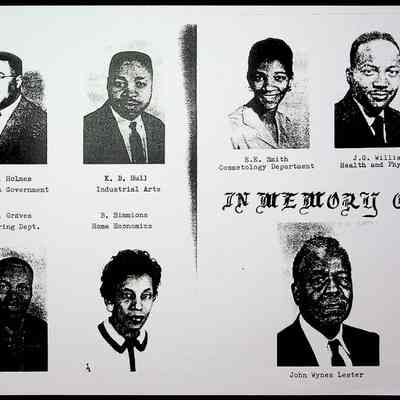 Holmes
Government
K. D. Hull
Industrial Arts
Graves
ring Dept.
B. Simmions
Home Economics
E.E. Smith
Cosmetology Department
J.G. Willia
Health and Phy
IN MEMORY O
John Wynes Lester